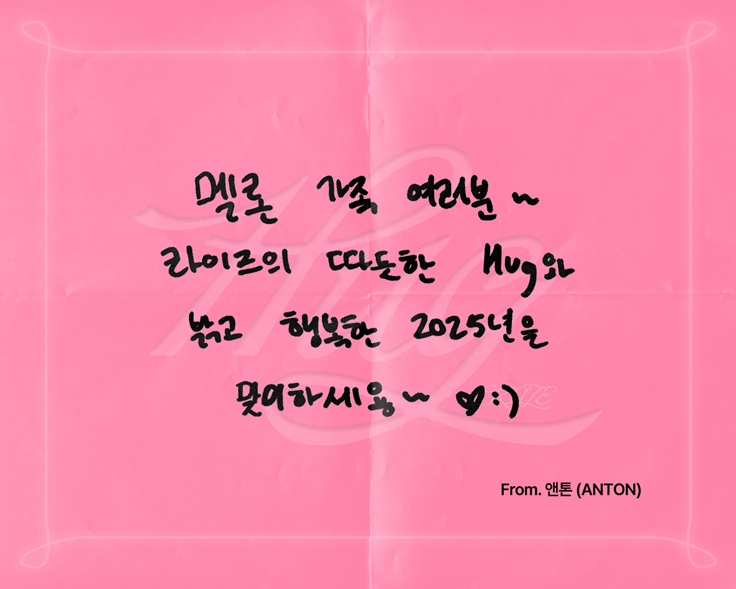 멜론 가족 여러분~
라이즈의 따듯한 Hug와
밝고 행복한 2025년을
맞이하세용~ ♥:)
From. 앤톤 (ANTON)